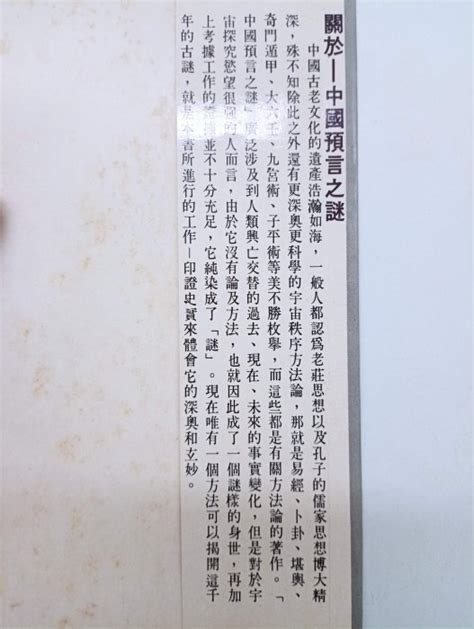 關於—中國預言之謎
中國古老文化的遺產浩瀚如海，一般人都認為老莊思想以及孔子的儒家思想博大精
深，殊不知除此之外還有更深奧更科學的宇宙秩序方法論，那就是易經、卜卦、堪輿、
奇門遁甲、大六壬、九宮術、子平術等美不勝枚舉，而這些都是有關方法論的著作。「
中國預言之謎」廣泛涉及到人類興亡交替的過去、現在、未來的事實變化，但是對於宇
宙探究慾望很強的人而言，由於它沒有論及方法，也就因此成了一個謎樣的身世，再加
上考據工作的並不十分充足，它純染成了「謎」。現在唯有一個方法可以揭開這千
年的古謎，就是本書所進行的工作—印證史實來體會它的深奧和玄妙。